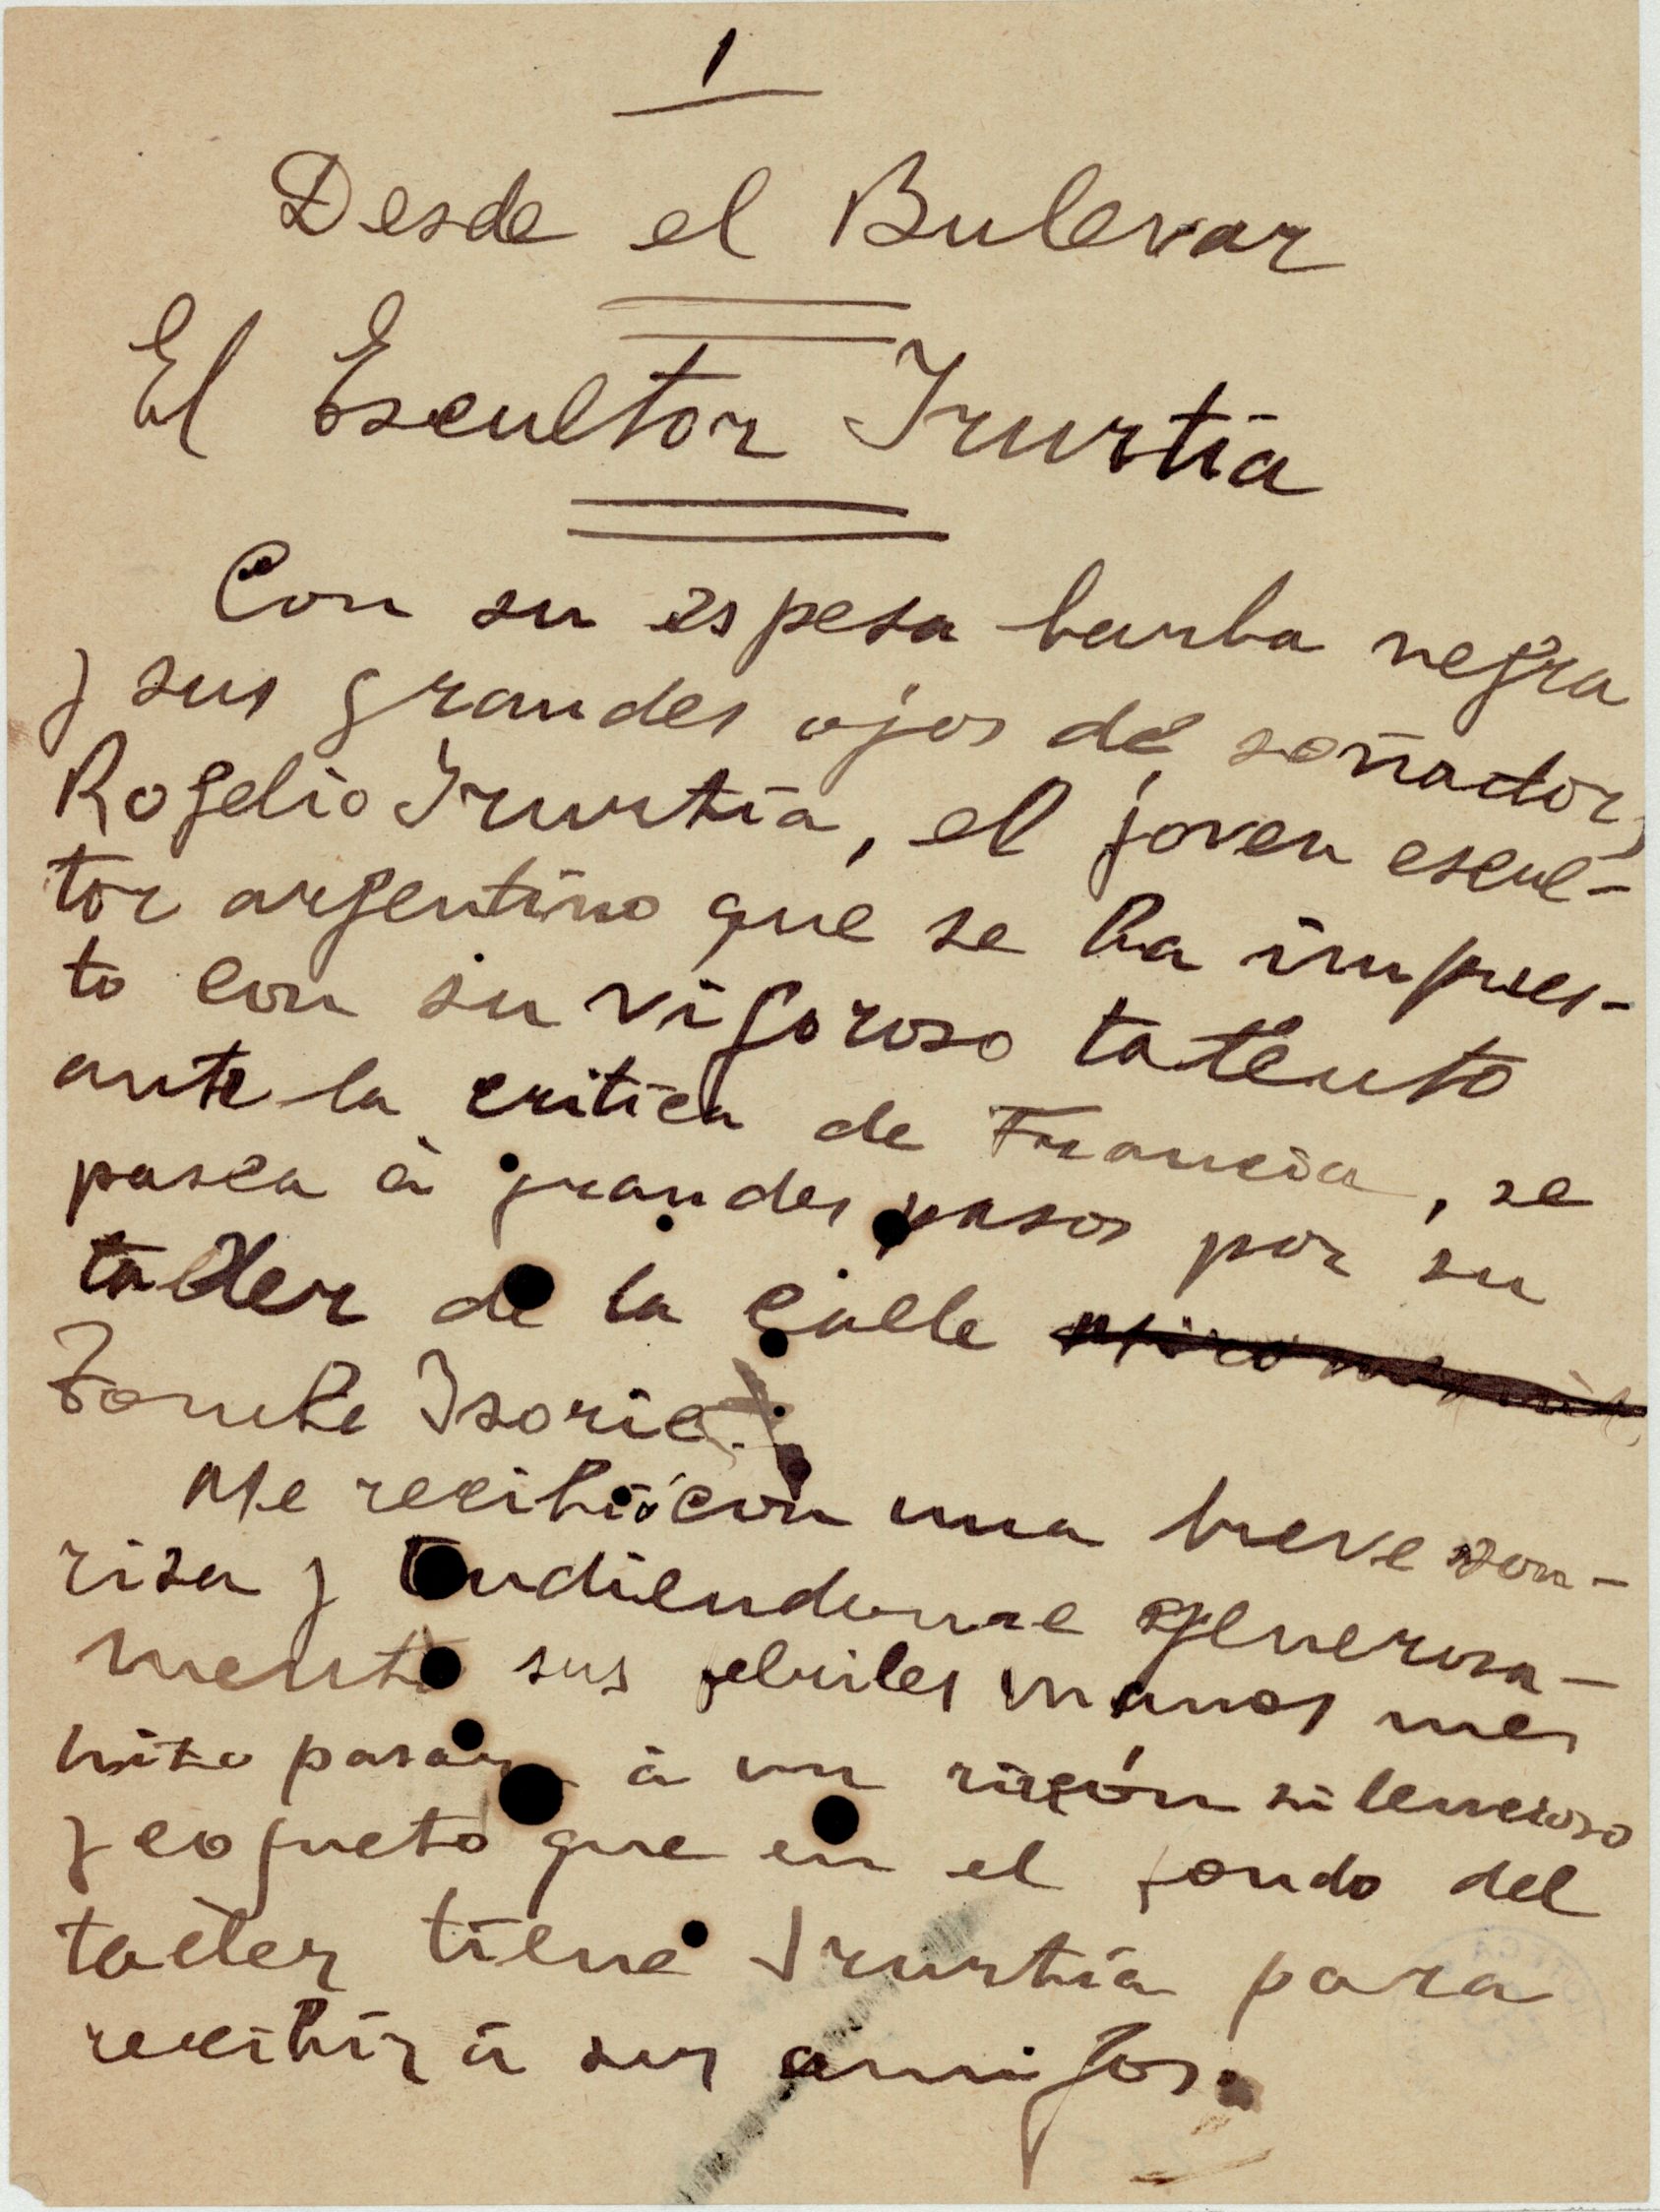 1
Desde el Bulevar
El Escultor Irurtia
Con su espesa barba negra
y sus grandes ojos de soñador,
Rogelio Irurtia, el joven escul-
tor argentino que se ha impues-
to con su vigoroso talento
ante la critica de Francia, se
pasea á grandes pasos por su
taller de la calle
Isorie.
Me recibió con una breve son-
risa y tendiendome generosa-
mente sus febriles manos me
hizo pasar á un rincón silencioso
y coqueto que en el fondo del
taller tiene Irurtia para
recibir á sus amigos.